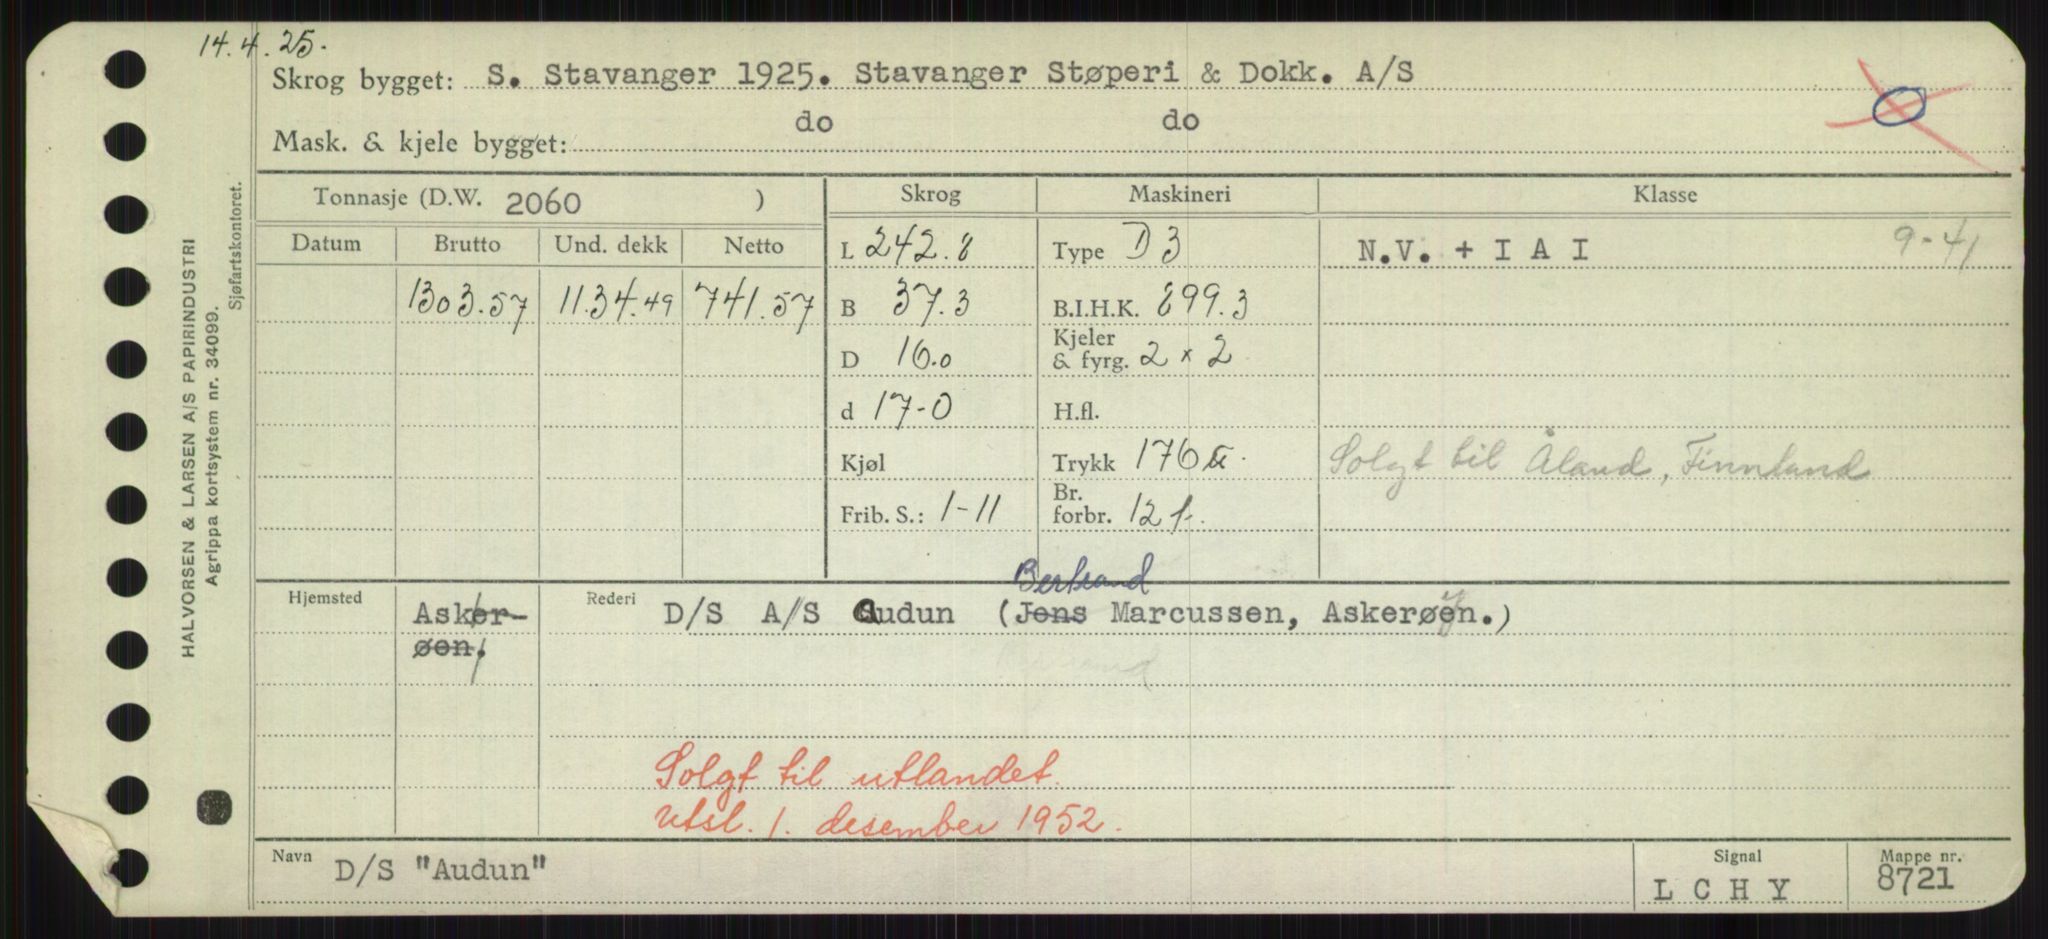 14.4.25.
Skrog bygget: S. Stavanger 1925. Stavanger Støperi & Dokk. A/S
Mask. & kjele bygget: do do
Tonnasje (D.W. 2060 ) Skrog Maskineri Klasse
Datum Brutto Und. dekk Netto L 242.8 Type D3 N.V. + I A I 9-41
1303.57 1134.49 741.57 B 37.3 B.I.H.K. 899.3
D 16.0 Kjeler & fyrg. 2 x 2
d 17-0 H.fl.
Kjøl Trykk 176 Solgt til Åland, Finnland
Frib. S.: 1-11 Br. forbr. 12 t.
Bertrand
Hjemsted Asker- Rederi D/S A/S Audun (Jens Marcussen, Askerøen.)
øen.
Solgt til utlandet.
Utsl. 1. desember 1952.
Navn D/S "Audun" Signal L C H Y Mappe nr. 8721
HALVORSEN & LARSEN A/S PAPIRINDUSTRI
Agrippa kortsystem nr. 34099.
Sjøfartskontoret.